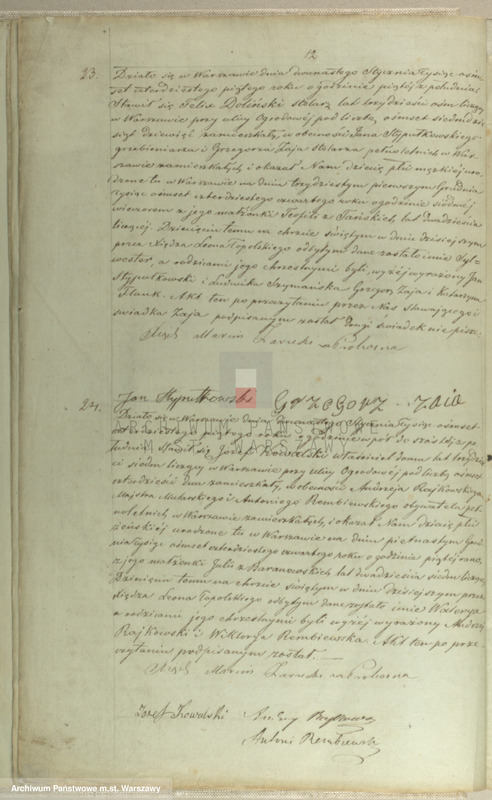 12
23. Działo się w Warszawie dnia dwunastego Stycznia tysiąc ośm-
set czterdziestego piątego roku o godzinie piątéj z południa.
Stawił się Felix Doliński stolarz lat trzydzieści ośm liczący
w Warszawie przy ulicy Ogrodowéj pod liczbą ośmset siedmdzie-
siąt dziewięć zamieszkały, w obecności Jana Stypułkowskiego
grzebieniarza i Grzegorza Zaja stolarza pełnoletnich w War-
szawie zamieszkałych i okazał Nam dziecię płci męzkiéj uro-
dzone tu w Warszawie na dniu trzydziestym pierwszym Grudnia
tysiąc ośmset czterdziestego czwartego roku o godzinie siódméj
wieczorem z jego małżonki Teofili z lat dwadzieścia
liczącéj. Dziecięciu temu na chrzcie świętym w dniu dzisiejszym
przez Xiędza Leona Topolskiego odbytym dane zostało imie Syl-
wester, a rodzicami jego chrzestnymi byli, wyżéj wyrażony Jan
Stypułkowski i Ludwika Szymańska Grzegorz Zaja i Katarzyna
Flank. Akt ten po przeczytaniu przez Nas stawającego i
świadka Zaja podpisanym został drugi świadek nie pisze.
Xiądz Marcin
Jan Stypułkowski Grzegorz - Zaia
24. Działo się w Warszawie dnia dwunastego Stycznia tysiąc ośmset
czterdziestego piątego roku o godzinie wpół do szóstéj z po-
łudnia. Stawił się Józef Kowalski właściciel domu lat trzydzie-
ści siedm liczący w Warszawie przy ulicy Ogrodowéj pod liczbą ośmset
czterdzieści dwa zamieszkały, w obecności Andrzeja Rajkowskiego
Majstra Mularskiego i Antoniego Rembiewskiego obywatela peł-
noletnich w Warszawie zamieszkałych, i okazał Nam dziecię płci
żeńskiéj urodzone tu w Warszawie na dniu piętnastym Gru-
dnia tysiąc ośmset czterdziestego czwartego roku o godzinie piątéj rano,
z jego małżonki Julii z Baranowskich, lat dwadzieścia siedm liczącéj.
Dziecięciu temu na chrzcie świętym w dniu dzisiejszym przez
Xiędza Leona Topolskiego odbytym dane zostało imie Walerya
a rodzicami jego chrzestnymi byli wyżéj wyrażony Andrzéj
Rajkowski i Wiktorya Rembiewska. Akt ten po prze-
czytaniu podpisanym został.
Xiądz Marcin
Józef Kowalski Andrzej
Antoni Rembiewski
ARCHIWUM PAŃSTWOWE
M.ST. WARSZAWY
Archiwum Państwowe m.st. Warszawy